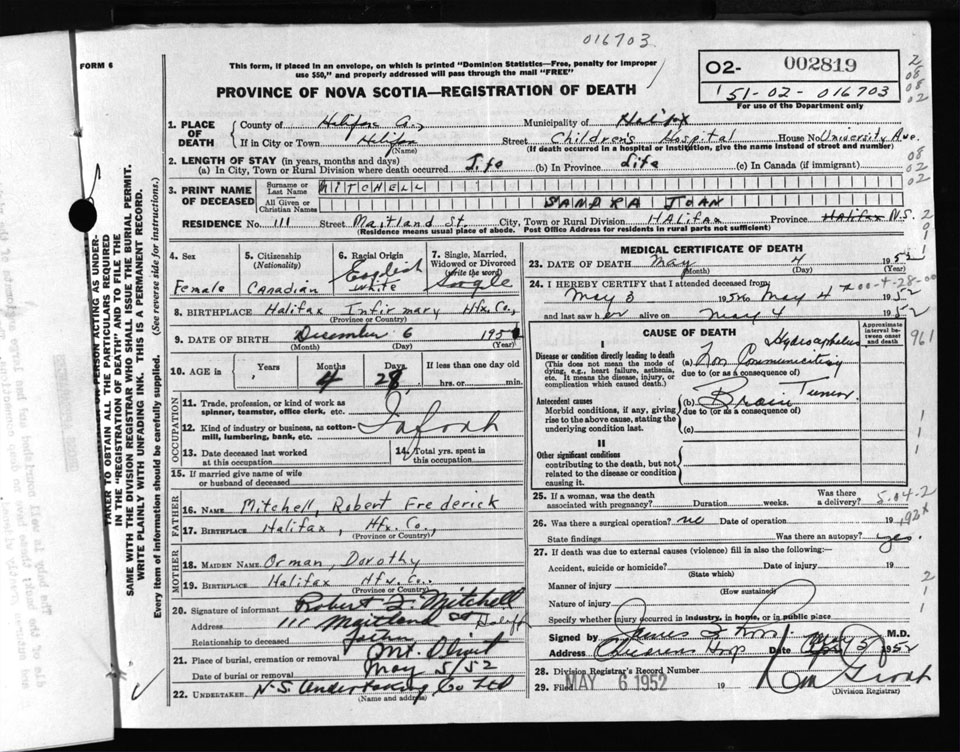 016703
FORM 6
This form, if placed in an envelope, on which is printed "Dominion Statistics—Free, penalty for improper
use $50," and properly addressed will pass through the mail "FREE"
PROVINCE OF NOVA SCOTIA—REGISTRATION OF DEATH
O2- 002819
51-02-016703
For use of the Department only
1. PLACE OF DEATH
County of Halifax Co., Municipality of Halifax
If in City or Town Halifax Street Children's Hospital House No. University Ave.
(Name) (If death occurred in a hospital or institution, give the name instead of street and number)
2. LENGTH OF STAY (in years, months and days)
(a) In City, Town or Rural Division where death occurred Life (b) In Province Life (c) In Canada (if immigrant)
3. PRINT NAME OF DECEASED
Surname or Last Name MITCHELL
All Given or Christian Names SANDRA JOAN
RESIDENCE No. 111 Street Maitland St. City, Town or Rural Division Halifax Province Halifax N.S.
(Residence means usual place of abode. Post Office Address for residents in rural parts not sufficient)
4. Sex Female
5. Citizenship (Nationality) Canadian
6. Racial Origin English White
7. Single, Married, Widowed or Divorced (write the word) Single
8. BIRTHPLACE Halifax Infirmary Hfx. Co.,
(Province or Country)
9. DATE OF BIRTH December 6 1951
(Month) (Day) (Year)
10. AGE in Years Months 4 Days 28 If less than one day old
hrs. or min.
OCCUPATION
11. Trade, profession, or kind of work as
spinner, teamster, office clerk, etc.
12. Kind of industry or business, as cotton-
mill, lumbering, bank, etc.
13. Date deceased last worked
at this occupation
14. Total yrs. spent in
this occupation
15. If married give name of wife
or husband of deceased
FATHER
16. NAME Mitchell, Robert Frederick
17. BIRTHPLACE Halifax, Hfx. Co.,
(Province or Country)
MOTHER
18. MAIDEN NAME Orman, Dorothy
19. BIRTHPLACE Halifax Hfx. Co.
(Province or Country)
20. Signature of informant Robert F. Mitchell
Address 111 Maitland St Halifax
Relationship to deceased father
21. Place of burial, cremation or removal Mt. Olivet
Date of burial or removal May 5/52
22. UNDERTAKER N.S. Undertaking Co Ltd
(Name and address)
MEDICAL CERTIFICATE OF DEATH
23. DATE OF DEATH May 4 1952
(Month) (Day) (Year)
24. I HEREBY CERTIFY that I attended deceased from
May 3 1952 to May 4 1952
and last saw her alive on May 4 1952
CAUSE OF DEATH
Approximate interval between onset and death
I
Disease or condition directly leading to death
(This does not mean the mode of
dying, e.g., heart failure, asthenia,
etc. It means the disease, injury, or
complication which caused death.)
Hydrocephalus
(a) Non Communicating
due to (or as a consequence of)
Antecedent causes
Morbid conditions, if any, giving
rise to the above cause, stating the
underlying condition last.
(b) Brain Tumor
due to (or as a consequence of)
(c)
II
Other significant conditions
contributing to the death, but not
related to the disease or condition
causing it.
25. If a woman, was the death
associated with pregnancy? Duration weeks. Was there
a delivery?
26. Was there a surgical operation? no Date of operation 19
State findings Was there an autopsy? yes.
27. If death was due to external causes (violence) fill in also the following:—
Accident, suicide or homicide? Date of injury 19
(State which)
Manner of injury
(How sustained)
Nature of injury
Specify whether injury occurred in industry, in home, or in public place
Signed by M.D.
Address Childrens Hosp Date 1952
28. Division Registrar's Record Number
29. Filed MAY 6 1952 19
(Division Registrar)
TAKER TO OBTAIN ALL THE PARTICULARS REQUIRED
IN THE "REGISTRATION OF DEATH" AND TO FILE THE
SAME WITH THE DIVISION REGISTRAR WHO SHALL ISSUE THE BURIAL PERMIT.
WRITE PLAINLY WITH UNFADING INK. THIS IS A PERMANENT RECORD.
Every item of information should be carefully supplied. (See reverse side for instructions.)